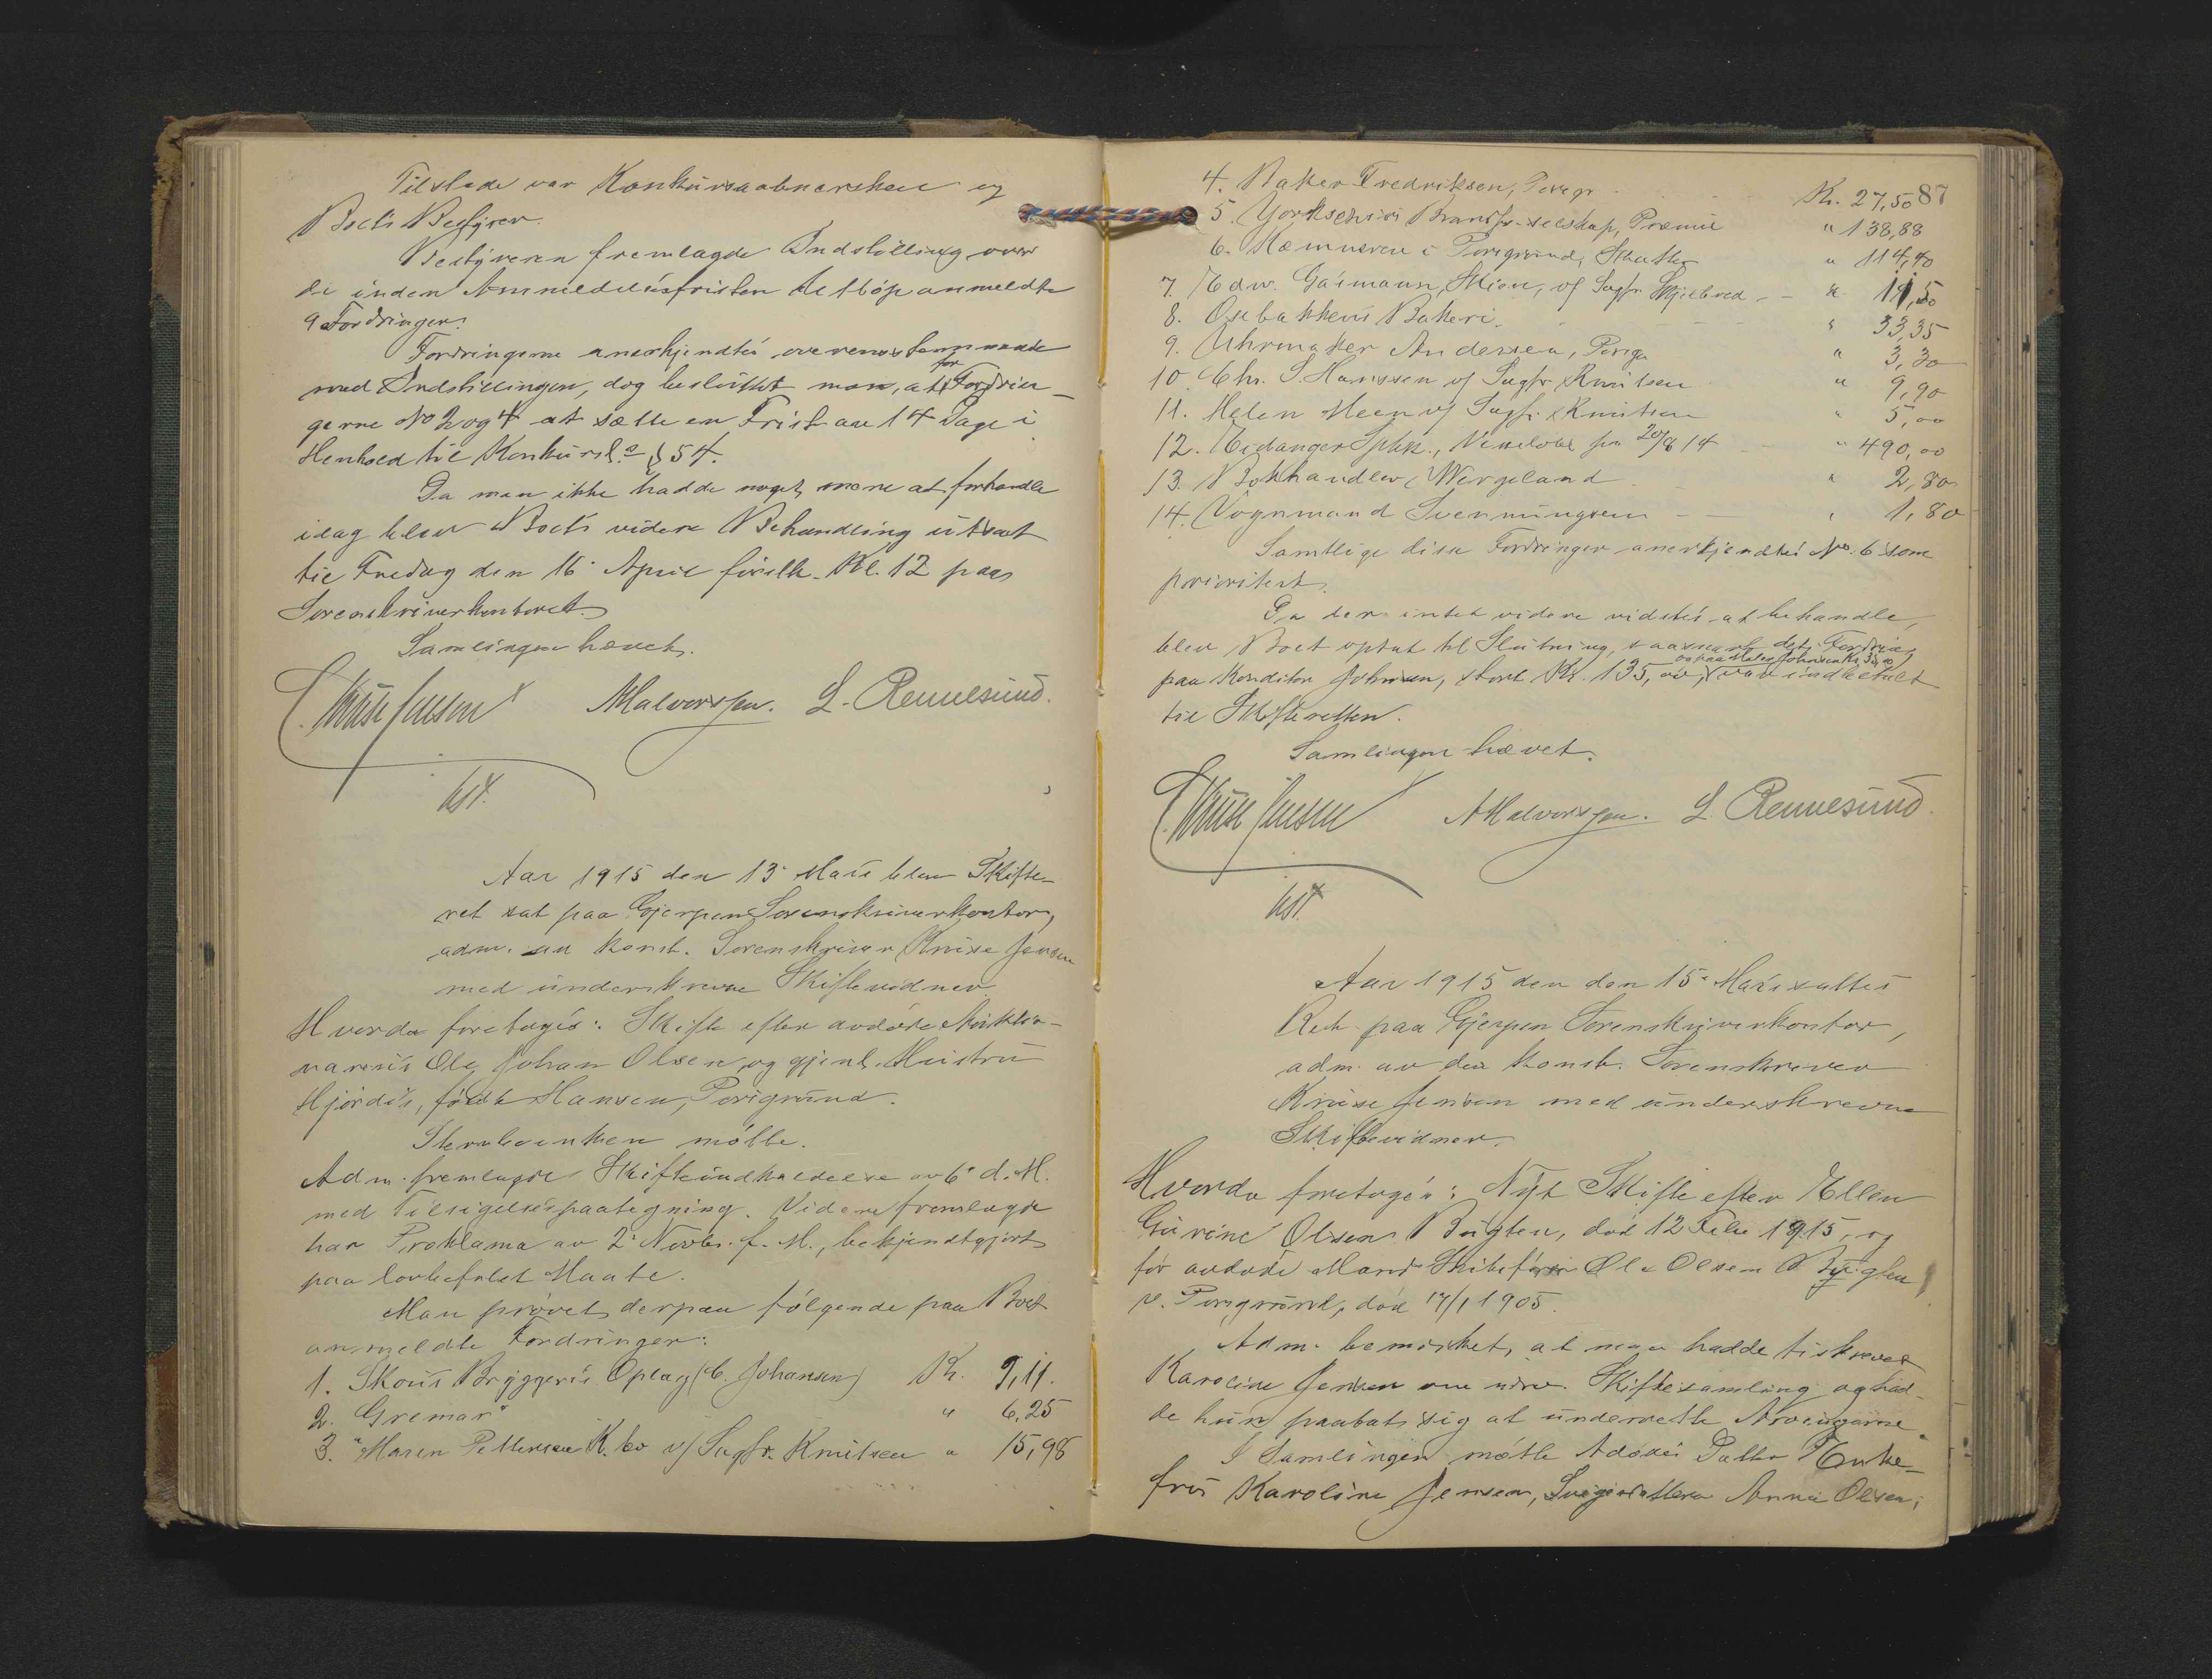 Tilstede var Konkursaabnerskens og
Boets Bestyrer.
Bestyreren fremlagde Indstilling over
de inden Anmeldelsesfristen Utløp anmeldte
9 Fordringer.
Fordringerne anerkjendtes overensstemmende
med Indstillingen, dog besluttet man, at for Fordrin-
gerne No 2 og 4 at sætte en Frist av 14 Dage i
Henhold til Konkursl.s § 54.
Da man ikke hadde noget mere at forhandle
idag blev Boets videre Behandling utsat
til Fredag den 16. April førstk. Kl. 12 paa
Sorenskriverkontoret.
Samlingen hævet.
Kruse Jensen
AHalvorsen. L. Rennesund.
kst.
Aar 1915 den 13. Mars blev Skifte-
ret sat paa Gjerpen Sorenskriverkontor,
adm. av konst. Sorenskriver Kruse Jensen
med underskrevne Skiftevidner
Hvorda foretoges: Skifte efter avdøde Auktio-
narius Ole Johan Olsen og gjenl. Hustru
Hjørdis, født Hansen, Porsgrund.
Stervboenken møtte.
Adm. fremlagde Skifteindkaldelse av 6. d. M.
med Tilsigelsespaategning. Videre fremlagde
han Proklama av 2. Novbr. f. A., bekjendtgjort
paa lovbefalet Maate.
Man prøvet derpaa følgende paa Boet
anmeldte Fordringer:
1. Skous Bryggeris Oplag (C. Johansen) Kr. 9,11.
2. "Gremar" " 6,25
3. Maren Pettersen K. bo v/ Sagfr. Knutsen " 15,98
87
4. Baker Fredriksen, Porsgr. Kr. 27,50
5. Yorkschire Brandfor. selskap, Præmie " 138,88
6. Kæmneren i Porsgrund, Skatter " 114,40
7. Edw. Gasmann, Skien, v/ Sagfr. Skjelbred " 11,50
8. Osebakkens Bakeri " 33,35
9. Uhrmaker Andersen, Porsgr. " 3,30
10. Chr. S. Hanssen v/ Sagfr. Knutsen " 9,90
11. Helen Meen v/ Sagfr. Knutsen " 5,00
12. Eidanger Spbk., Vexelobl. fra 20/8 14 " 490,00
13. Bokhandler Wergeland " 2,80
14. Vognmand Svenningsen " 1,80
Samtlige disse Fordringer anerkjendtes No. 6 som
prioritert.
Da der intet videre vidstes at behandle,
blev Boet optat til Slutning, saasnart dets Fordring
og paa Maler Johnsen Kr. 35,00
paa Konditor Johnsen, stort Kr. 135,00, var indbetalt
til Skifteretten.
Samlingen hævet.
Kruse Jensen
AHalvorsen. L. Rennesund.
kst.
Aar 1915 den den 15. Mars sattes
Ret paa Gjerpen Sorenskriverkontor,
adm. av den konst. Sorenskriver
Kruse Jensen med underskrevne
Skiftevidner.
Hvorda foretoges: Nyt Skifte efter Ellen
Gurine Olsen Bugten, død 12 Febr 1915, og
før avdøde Mand Skibsfører Ole Olsen Bugten
v. Porsgrund, død 17/1 1905.
Adm. bemærket, at man hadde tilskrevet
Karoline Jensen om nærv. Skiftesamling og had-
de hun paatat sig at underrette Arvingerne.
I Samlingen møtte Avdødes Datter Enke-
fru Karoline Jensen, Svigerdatteren Anna Olsen,